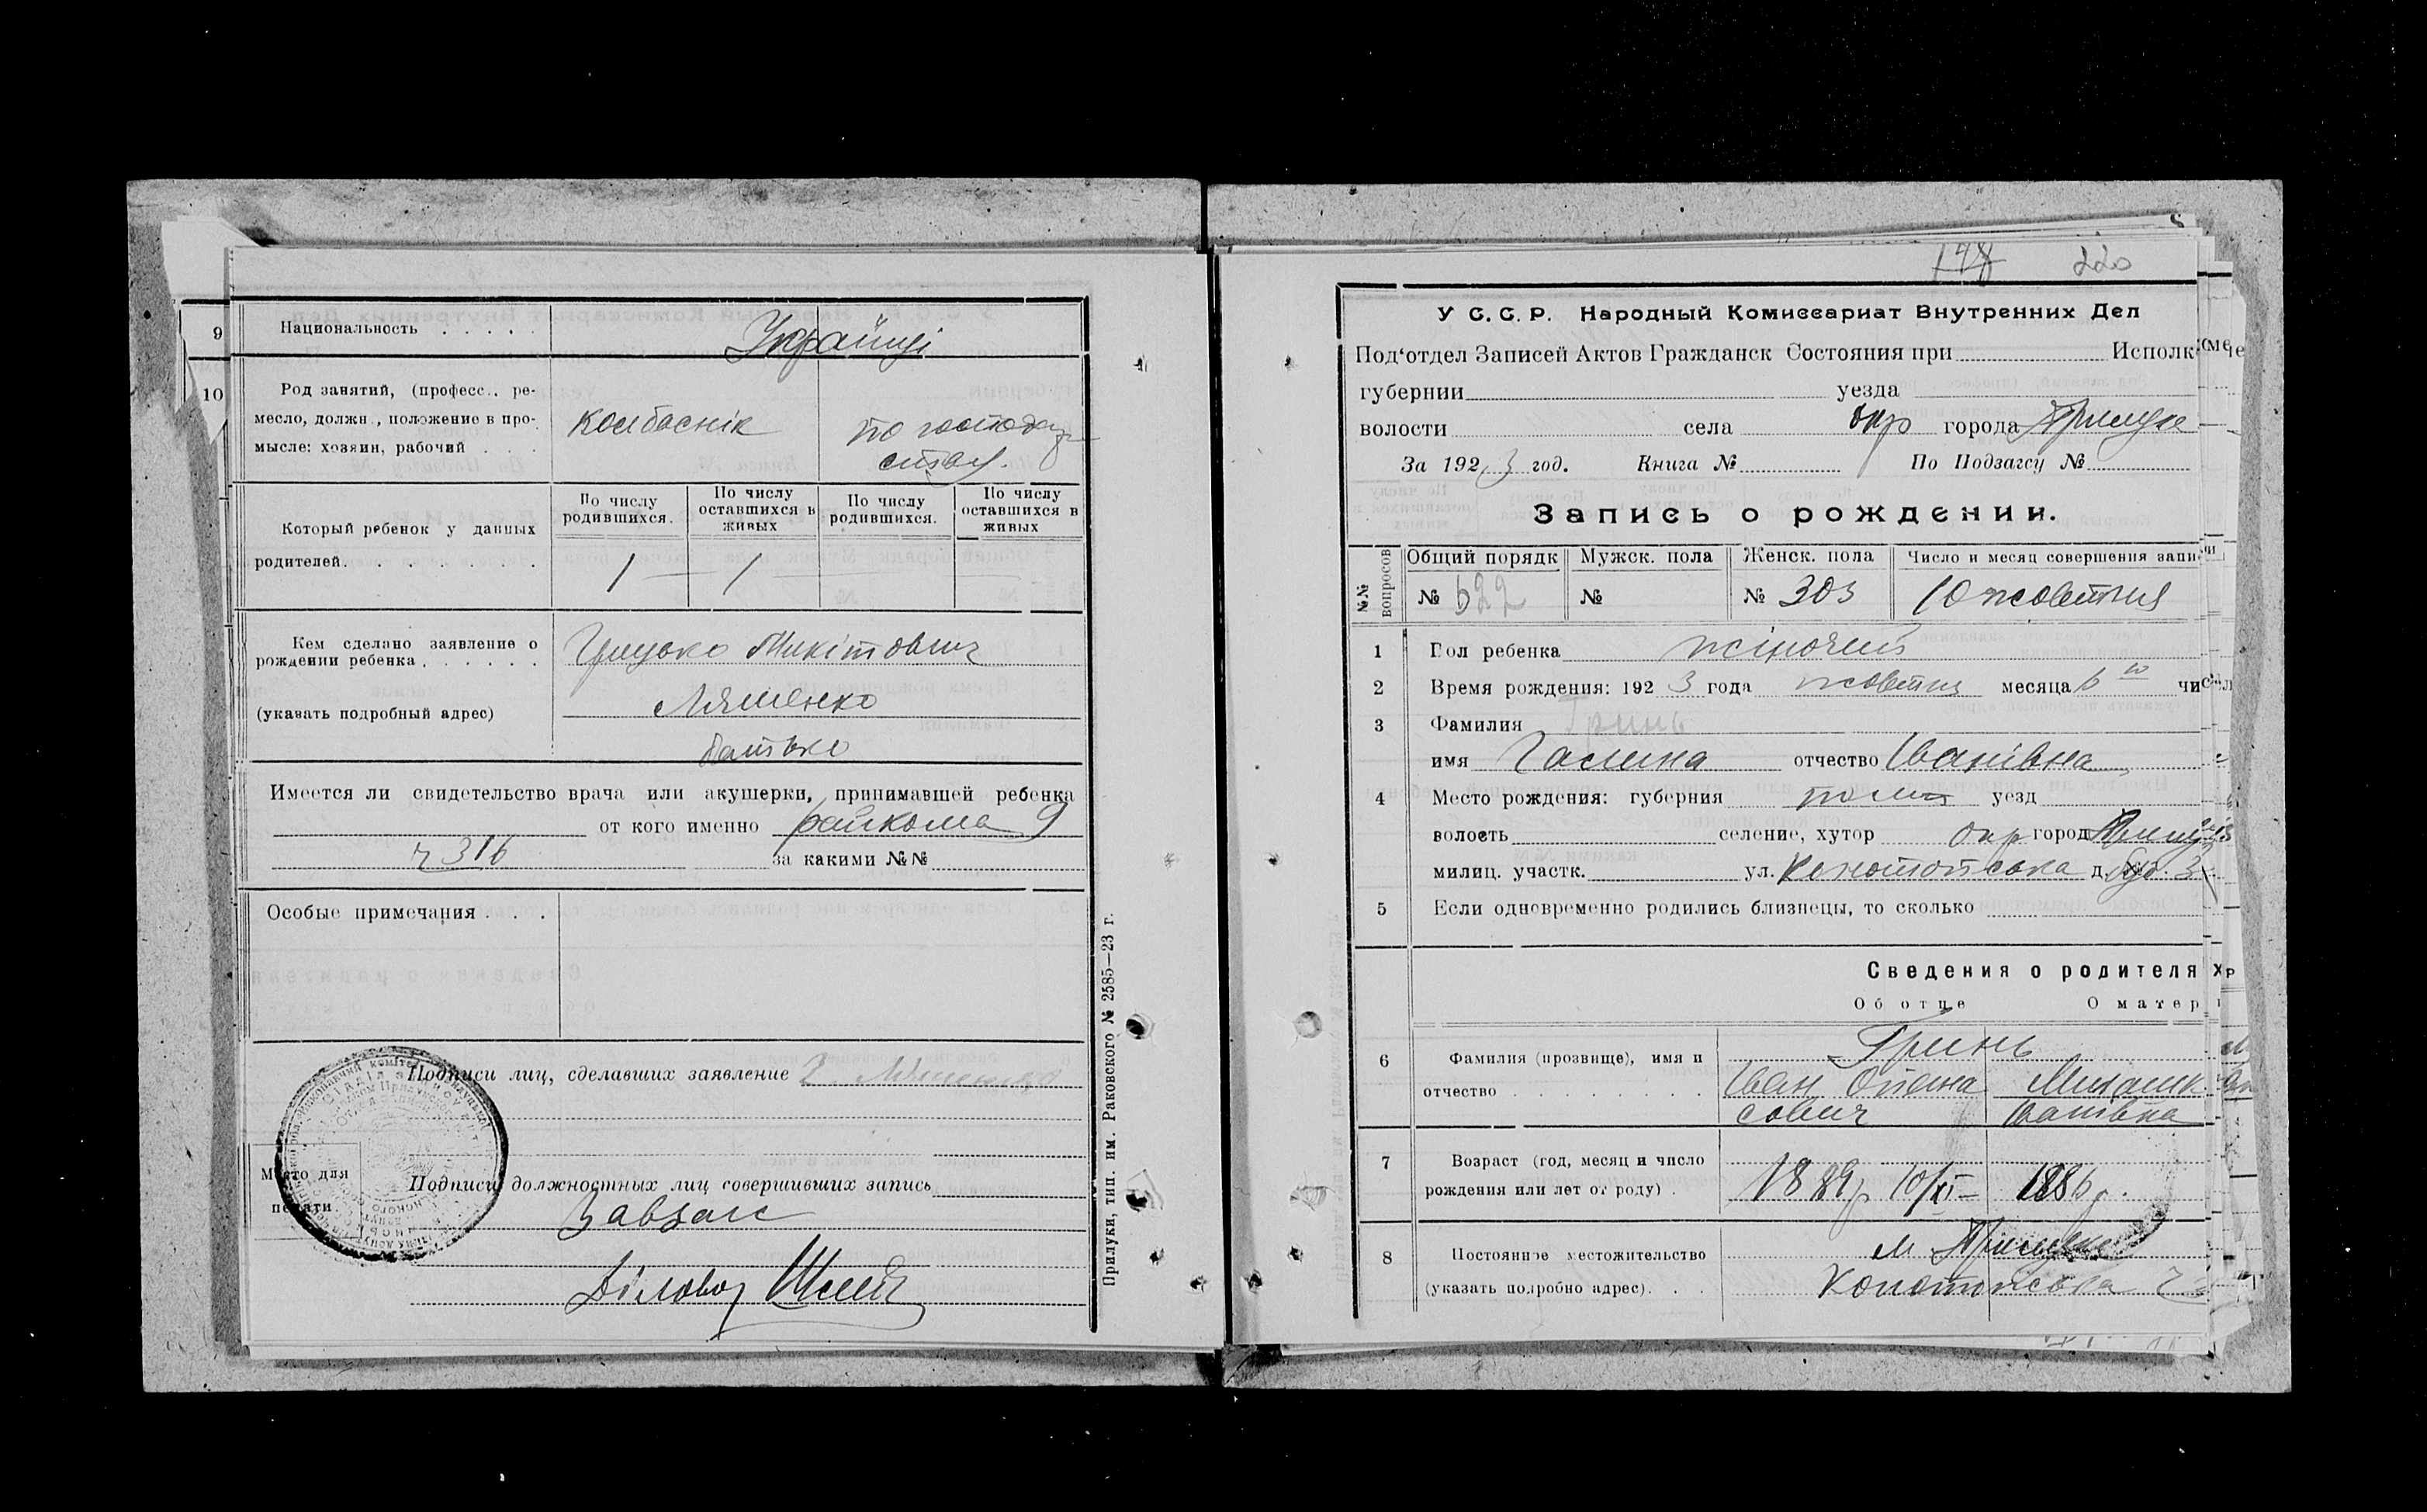 9 Национальность . . . . . Українці
10 Род занятий, (професс., ре-
месло, должн., положение в про-
мысле: хозяин, рабочий . . .
колбаснік
по господар
ству.
Который ребенок у данных
родителей. . . . . . .
По числу родившихся.
По числу оставшихся в живых
По числу родившихся.
По числу оставшихся в живых
1 1
Кем сделано заявление о
рождении ребенка . . . . . .
(указать подробный адрес)
Грицько Микітович
Ляшенко
батько
Имеется ли свидетельство врача или акушерки, принимавшей ребенка
от кого именно райкома 9
ч 316 за какими №№
Особые примечания . . .
Подписи лиц, сделавших заявление
Место для
печати
Подписи должностных лиц совершивших запись
Завзагс
Діловод
Прилуки, тип. им. Раковского № 2585—23 г.
148 220
У С. С. Р. Народный Комиссариат Внутренних Дел
Под'отдел Записей Актов Гражданск Состояния при Исполк
губернии уезда
волости села окр города Прилуке
За 1923 год. Книга № По Подзагсу №
Запись о рождении.
№№ вопросов
Общий порядк Мужск. пола Женск. пола Число и месяц совершения записи
№ 622 № № 303 10 жовтня
1 Пол ребенка жіночий
2 Время рождения: 1923 года жовтня месяца 6 го чис
3 Фамилия Гринь
имя Галина отчество Іванівна
4 Место рождения: губерния полт уезд
волость селение, хутор окр город
милиц. участк. ул. Конотопська д. буд. 3
5 Если одновременно родились близнецы, то сколько
Сведения о родителях
Об отце О матер
6 Фамилия (прозвище), имя и
отчество . . . . . . . .
Гринь
Іван Опана
сович
7 Возраст (год, месяц и число
рождения или лет от роду) .
1889р 10/XI 1886р.
8 Постоянное местожительство
(указать подробно адрес). . .
м Прилуке
Конотопська